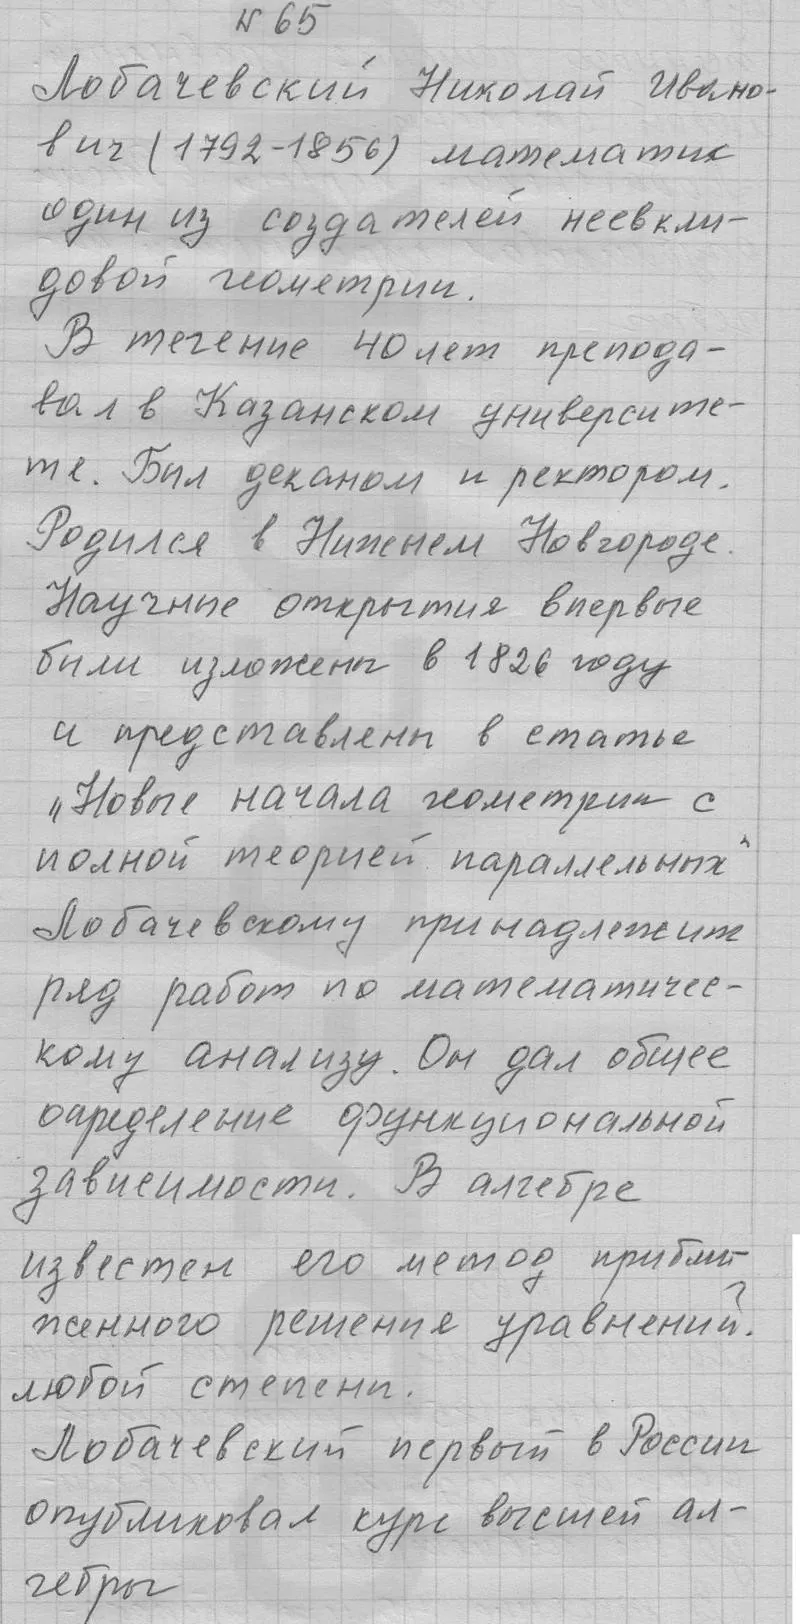 № 65
Лобачевский Николай Ивано-
вич (1792-1856) математик
один из создателей неевкли-
довой геометрии.
В течение 40 лет препода-
вал в Казанском университе-
те. Был деканом и ректором.
Родился в Нижнем Новгороде.
Научные открытия впервые
были изложены в 1826 году
и представлены в статье
„Новые начала геометрии с
полной теорией параллельных"
Лобачевскому принадлежит
ряд работ по математичес-
кому анализу. Он дал общее
определение функциональной
зависимости. В алгебре
известен его метод прибли-
женного решения уравнений?.
любой степени.
Лобачевский первый в России
опубликовал курс высшей ал-
гебры